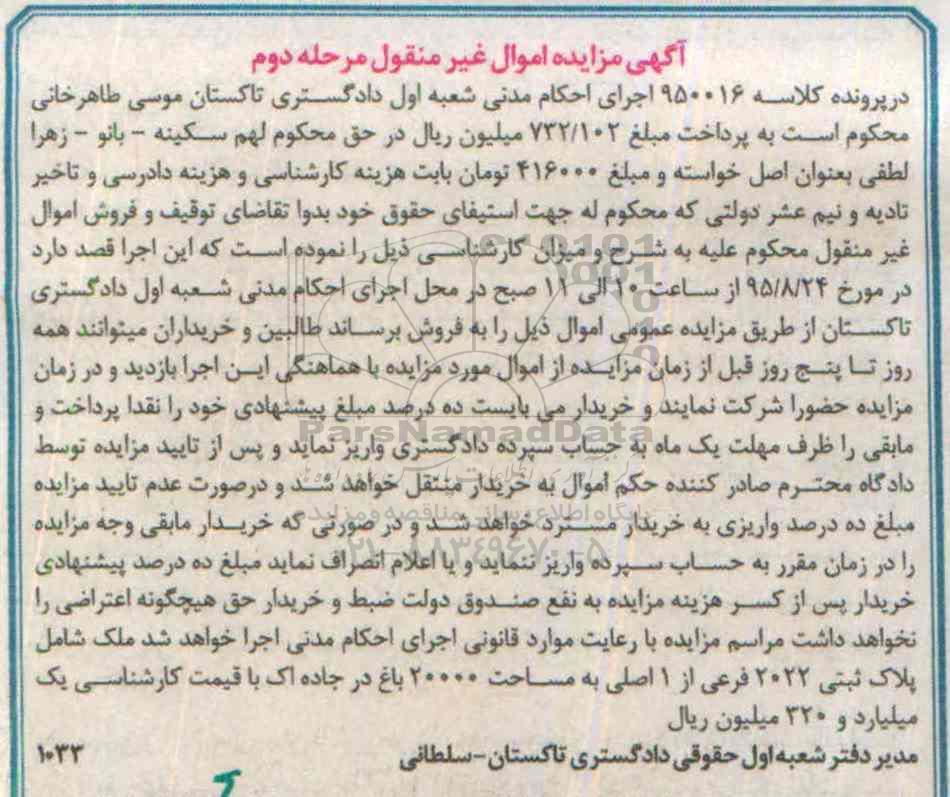 آگهی مزایده اموال غیر منقول مرحله دوم
درپرونده کلاسه ۹۵۰۰۱۶ اجرای احکام مدنی شعبه اول دادگستری تاکستان موسی طاهرخانی
محکوم است به پرداخت مبلغ ۷۳۲/۱۰۲ میلیون ریال در حق محکوم لهم سکینه - بانو - زهرا
لطفی بعنوان اصل خواسته و مبلغ ۴۱۶۰۰۰ تومان بابت هزینه کارشناسی و هزینه دادرسی و تاخیر
تادیه و نیم عشر دولتی که محکوم له جهت استیفای حقوق خود بدوا تقاضای توقیف و فروش اموال
غیر منقول محکوم علیه به شرح و میزان کارشناسی ذیل را نموده است که این اجرا قصد دارد
در مورخ ۹۵/۸/۲۴ از ساعت ۱۰ الی ۱۱ صبح در محل اجرای احکام مدنی شعبه اول دادگستری
تاکستان از طریق مزایده عمومی اموال ذیل را به فروش برساند طالبین و خریداران میتوانند همه
روز تا پنج روز قبل از زمان مزایده از اموال مورد مزایده با هماهنگی این اجرا بازدید و در زمان
مزایده حضورا شرکت نمایند و خریدار می بایست ده درصد مبلغ پیشنهادی خود را نقدا پرداخت و
مابقی را ظرف مهلت یک ماه به حساب سپرده دادگستری واریز نماید و پس از تایید مزایده توسط
دادگاه محترم صادر کننده حکم اموال به خریدار منتقل خواهد شد و درصورت عدم تایید مزایده
مبلغ ده درصد واریزی به خریدار مسترد خواهد شد و در صورتی که خریدار مابقی وجه مزایده
را در زمان مقرر به حساب سپرده واریز ننماید و یا اعلام انصراف نماید مبلغ ده درصد پیشنهادی
خریدار پس از کسر هزینه مزایده به نفع صندوق دولت ضبط و خریدار حق هیچگونه اعتراضی را
نخواهد داشت مراسم مزایده با رعایت موارد قانونی اجرای احکام مدنی اجرا خواهد شد ملک شامل
پلاک ثبتی ۲۰۲۲ فرعی از ۱ اصلی به مساحت ۲۰۰۰۰ باغ در جاده اک با قیمت کارشناسی یک
میلیارد و ۳۲۰ میلیون ریال
مدیر دفتر شعبه اول حقوقی دادگستری تاکستان-سلطانی
۱۰۳۳
ParsNamadData
پایگاه اطلاع رسانی مناقصه و مزایده